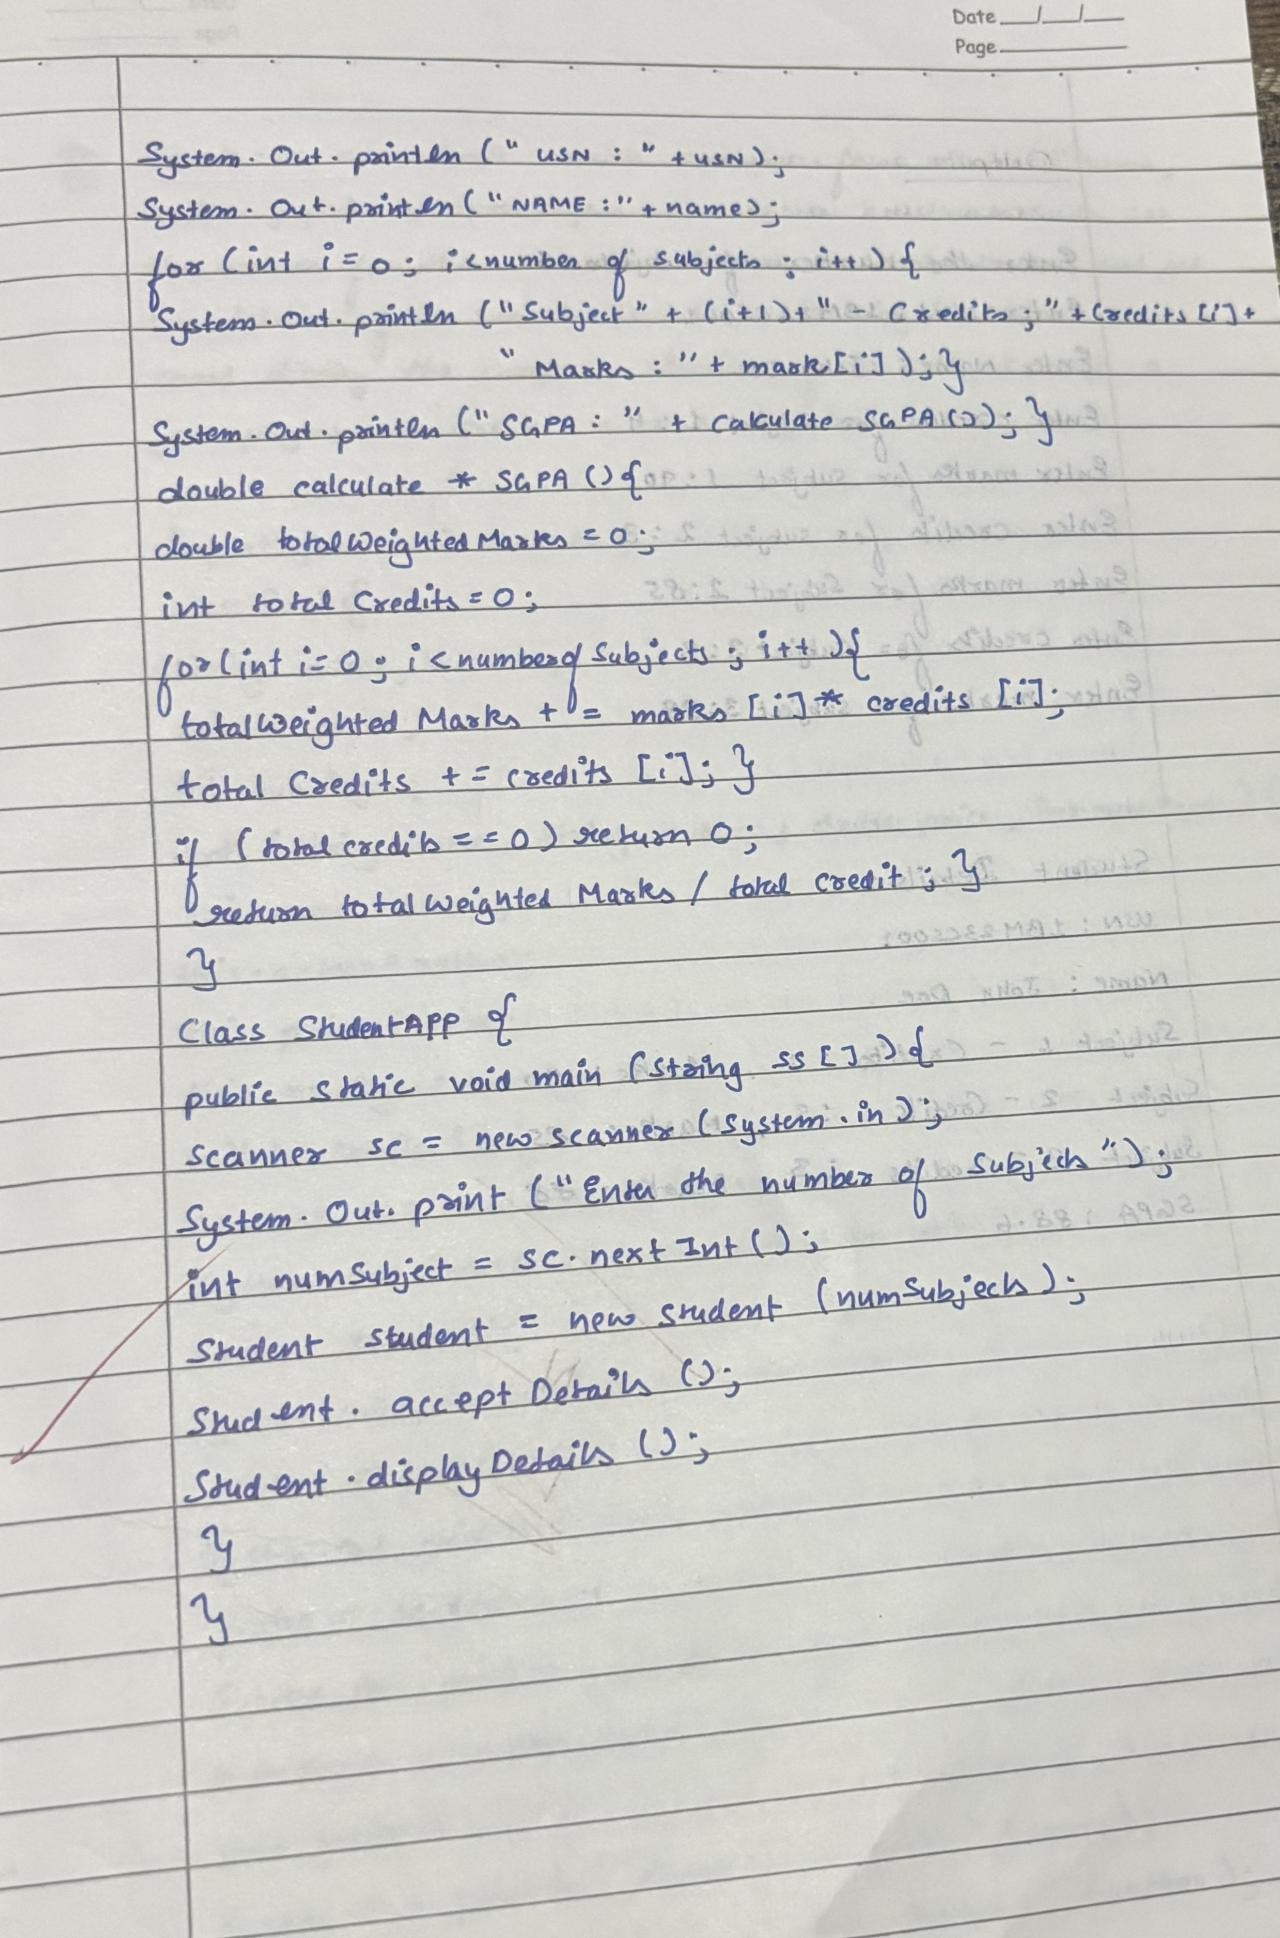 Date __/__/__
Page
System. Out. println (" USN : " + USN);
System. Out. println ("NAME :" + name);
for (int i = 0; i < number of subjects ; i++) {
System. Out. println ("Subject " + (i+1) + " - Credits ; " + Credits [i] +
" Marks : " + mark [i] ); }
System. Out. println (" SGPA : " + Calculate SGPA()); }
double calculate * SGPA () {
double total weighted Marks = 0 ;
int total Credits = 0 ;
for (int i = 0 ; i < number of Subjects ; i++ ) {
total weighted Marks + = marks [i] * credits [i];
total Credits + = credits [i]; }
if (total credits = = 0 ) return 0 ;
return total weighted Marks / total credit ; }
}
Class StudentAPP {
public static void main (String ss [] ) {
Scanner sc = new scanner (System . in );
System. Out. print (" Enter the number of Subjects ");
int numSubject = sc. next Int ();
Student student = new student (numSubjects );
Student . accept Details ();
Student . display Details ();
}
}